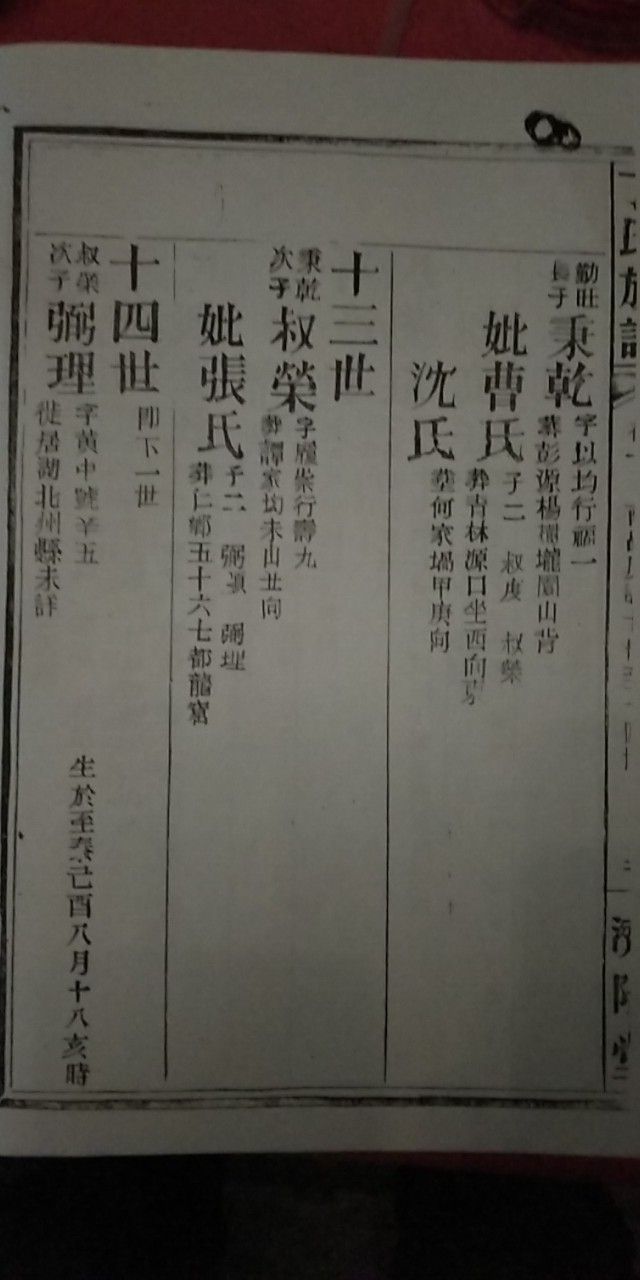 氏族譜
勤吐
長子
秉乾
字以均行福一
葬彭源楊梅壠園山背
妣曹氏
子二 叔虔 叔榮
葬青林源口坐西向東
沈氏
葬何家塢甲庚向
十三世
秉乾
次子
叔榮
字履榮行壽九
葬譚家坳未山丑向
妣張氏
子二 弼顯 弼理
葬仁鄉五十六七都龍窩
十四世
即下一世
叔榮
次子
弼理
字黃中號羊五
徙居湖北州縣未詳
生於至泰己酉八月十八亥時